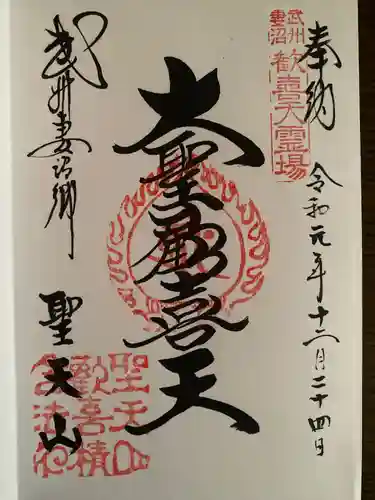 奉納
武州妻沼
歓喜天霊場
令和元年十二月二十四日
大聖歓喜天
武州妻沼郷
聖天山
聖天山
歓喜積